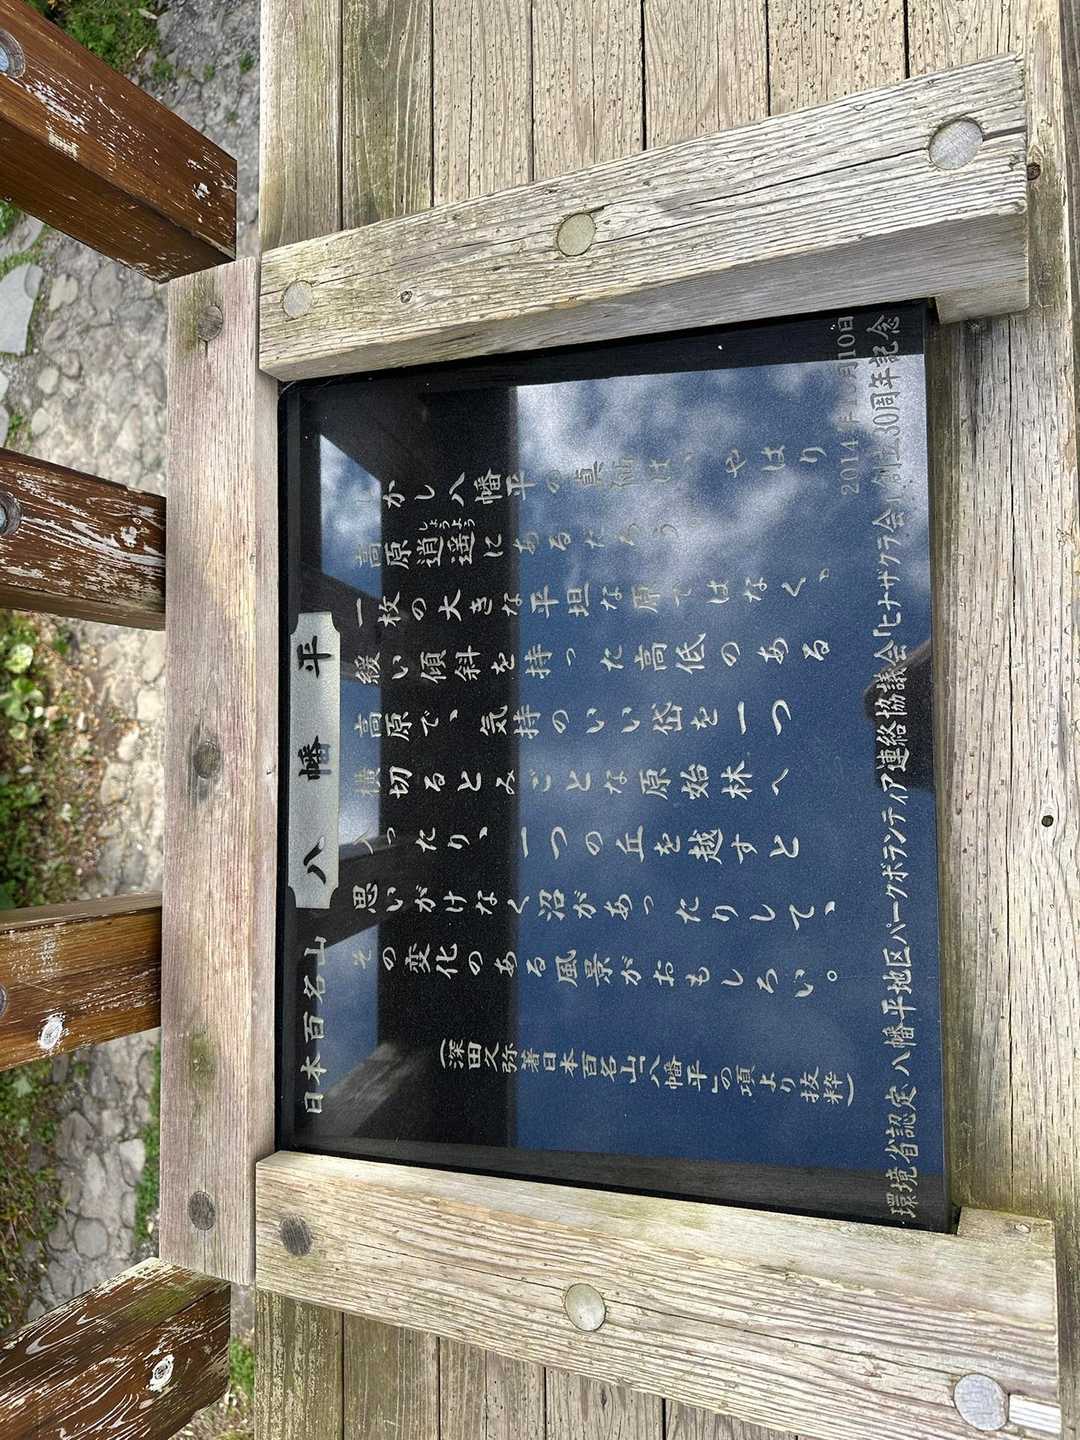 日本百名山 八幡平
しかし八幡平の真価は、やはり
しょうよう
高原逍遥にあるだろう
一枚の大きな平坦な原ではなく、
緩い傾斜を持った高低のある
高原で、気持のいい岱を一つ
横切るとみごとな原始林へ
入ったり、一つの丘を越すと
思いがけなく沼があったりして、
その変化のある風景がおもしろい。
(深田久弥著日本百名山「八幡平」の項より抜粋)
2014年 月10日
環境省認定 八幡平地区パークボランティア連絡協議会「ヒナザクラ会」創立30周年記念